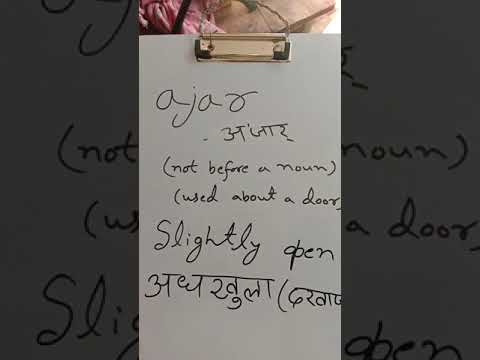 ajar
- अंजार्
(not before a noun)
(used about a door,
Slightly open
अधखुला (दरवाज